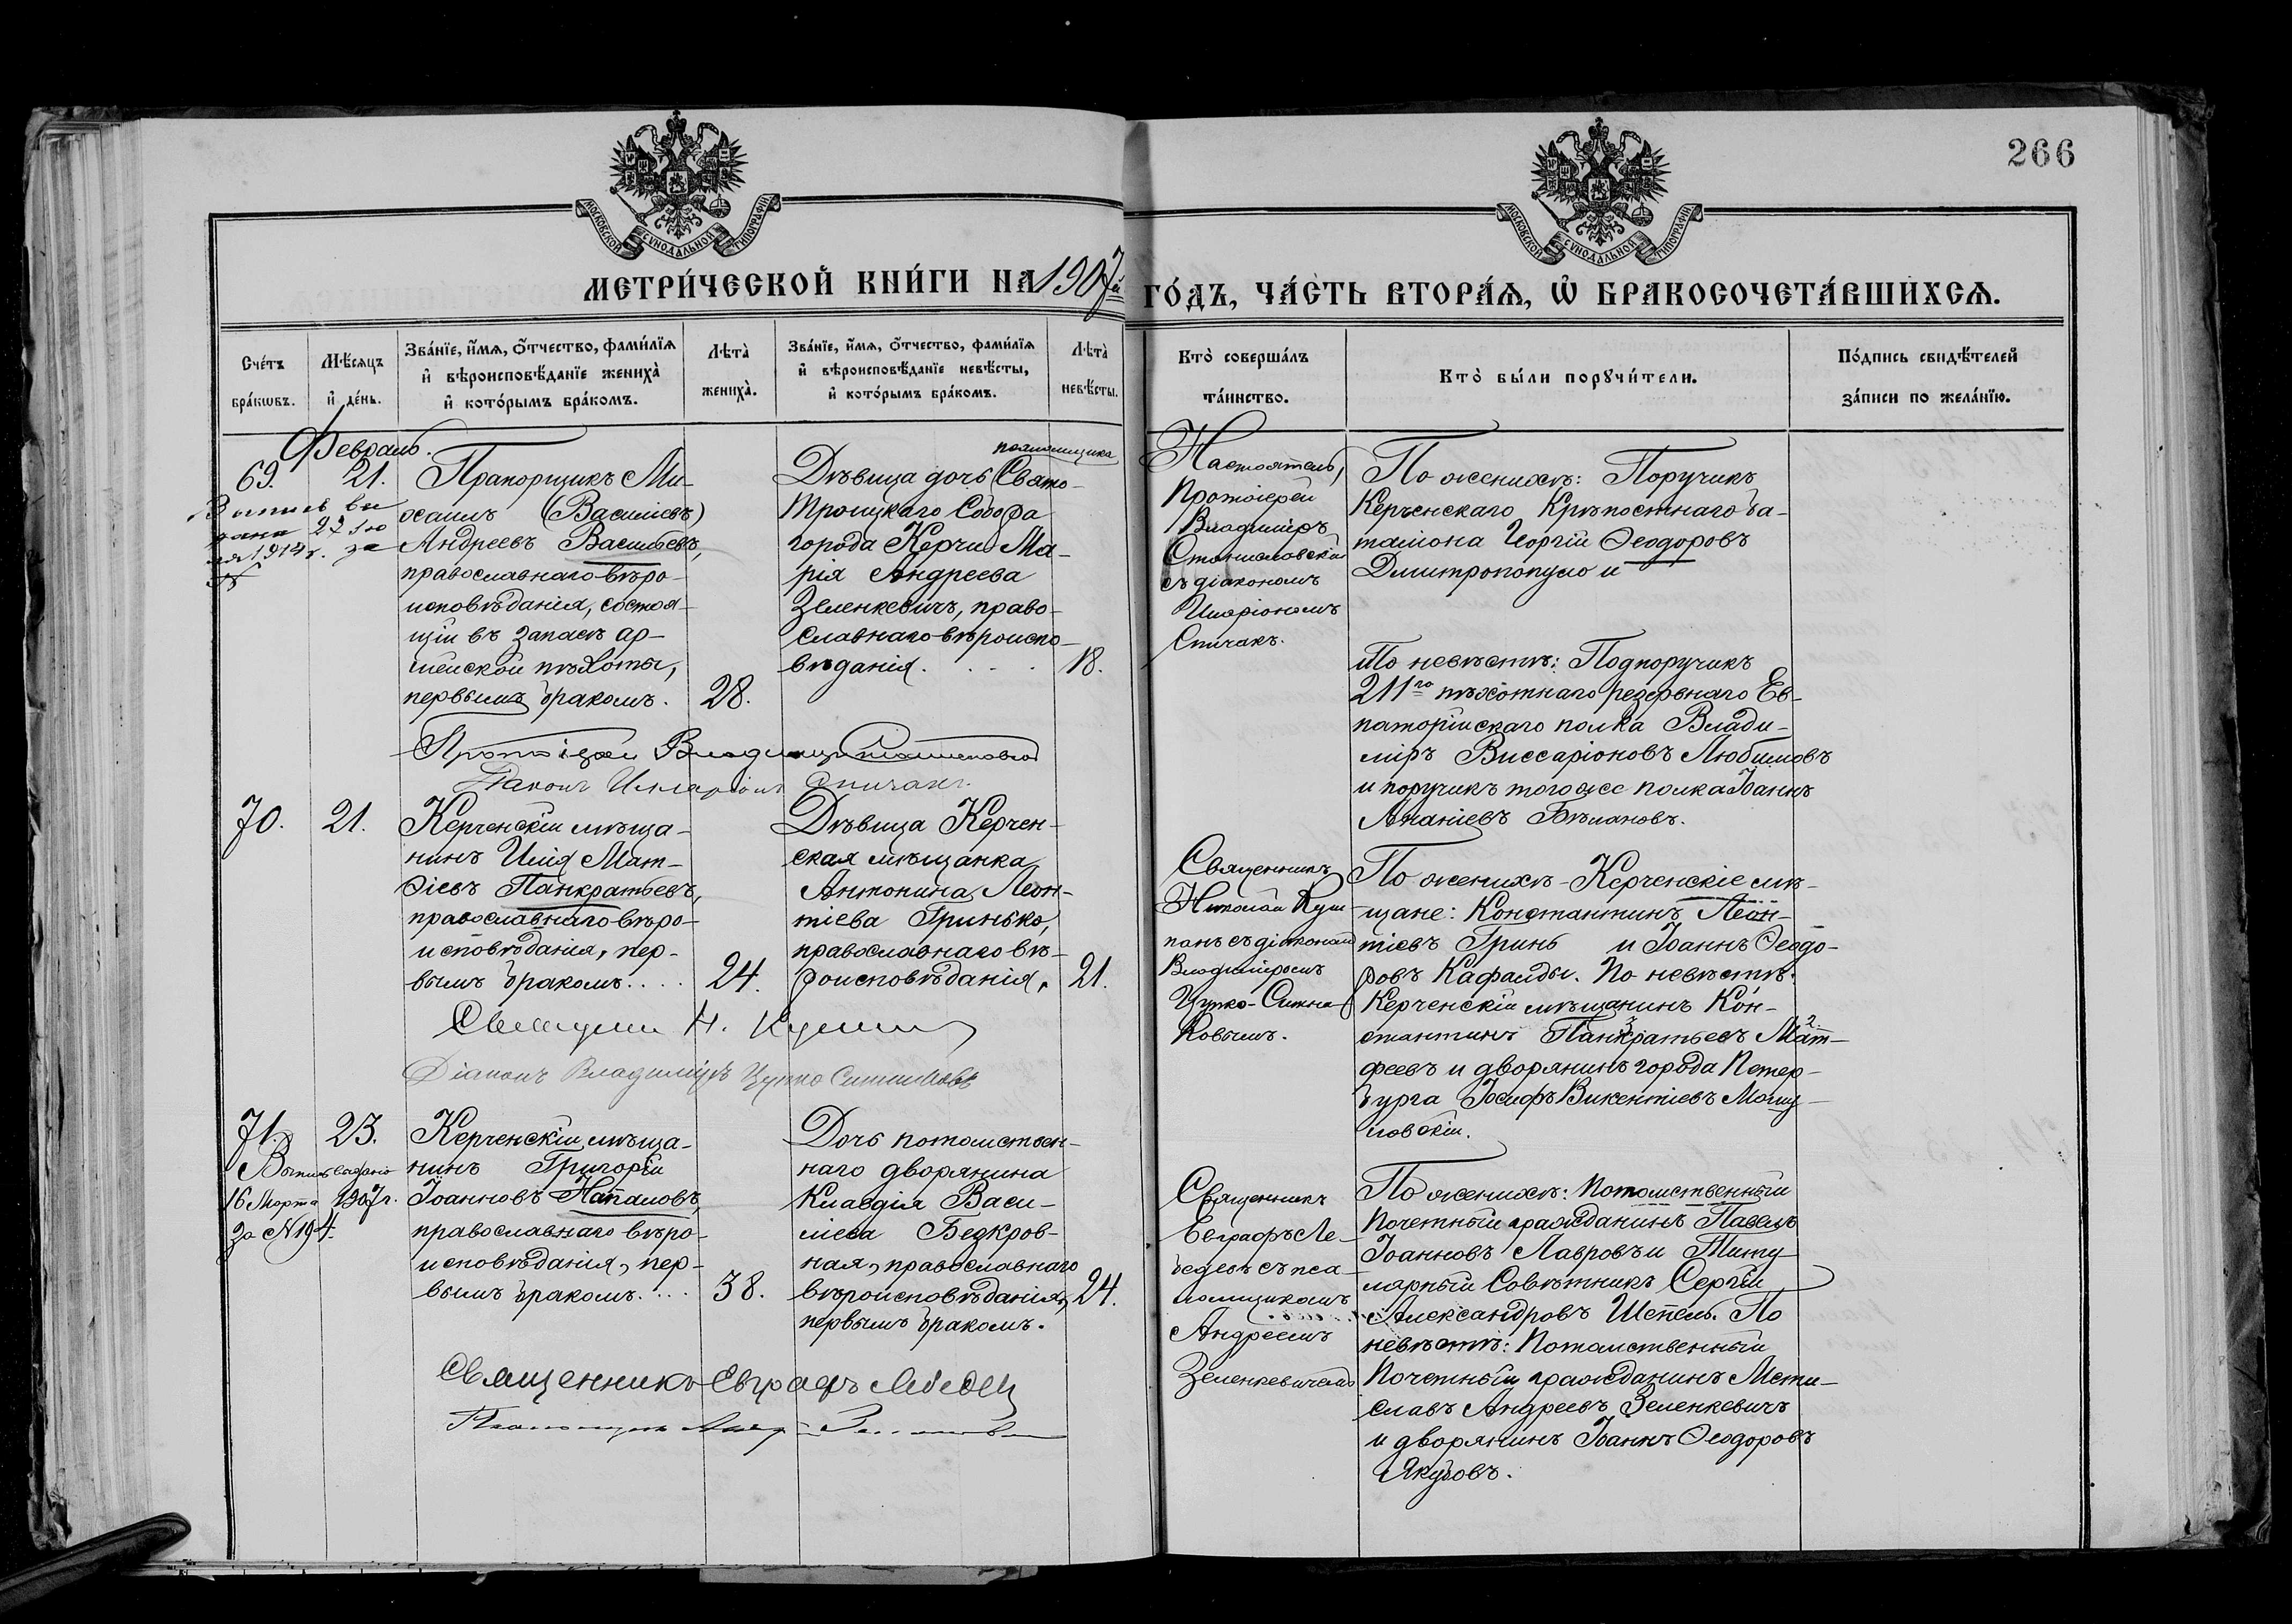 266
МОСКОВСКОЙ СѴНОДАЛЬНОЙ ТИПОГРАФІИ
МОСКОВСКОЙ СѴНОДАЛЬНОЙ ТИПОГРАФІИ
МЕТРИ́ЧЕСКОЙ КНИ́ГИ НА 1907й ГО́ДЪ, ЧА́СТЬ ВТОРА́Ѧ, Ѡ҆ БРАКОСОЧЕТА́ВШИХСѦ.
Сче́тъ
бра́кѡвъ.
Мѣ́сѧцъ
и҆ де́нь.
Зва́нїе, и҆́мѧ, ѻ҆́тчество, фами́лїѧ
и҆ вѣроисповѣ́данїе жениха̀
и҆ кото́рымъ бра́комъ.
Лѣта̀
жениха̀.
Зва́нїе, и҆́мѧ, ѻ҆́тчество, фами́лїѧ
и҆ вѣроисповѣ́данїе невѣ́сты,
и҆ кото́рымъ бра́комъ.
Лѣта̀
невѣ́сты.
Кто̀ соверша́лъ
та́инство.
Кто̀ бы́ли порꙋчи́тели.
По́дпись свидѣ́телей
за́писи по жела́нїю.
Февраль.
69.
21.
Выпись вы
дана 23 Iю
ля 1914 г. за
№
Прапорщикъ Ми-
хаилъ (Василіевъ)
Андреевъ Васильевъ,
православнаго вѣро-
исповѣданія, состоя-
щій въ запасѣ ар-
мейской пѣхоты,
первымъ бракомъ.
28.
псаломщика
Дѣвица дочь Свято-
Троицкаго Собора
города Керчи Ма-
рія Андреева
Зеленкевичъ, право-
славнаго вѣроиспо-
вѣданія. . . .
18.
Настоятель,
Протоіерей
Владиміръ
Станиславскій
съ діакономъ
Иларіономъ
Спичакъ.
По женихѣ: Поручикъ
Керченскаго Крѣпостнаго ба-
таліона Георгій Ѳеодоровъ
Димитропопуло и
По невѣстѣ: Подпоручикъ
211го пѣхотнаго резервнаго Ев-
паторійскаго полка Влади-
міръ Виссаріоновъ Любимовъ
и поручикъ того же полка Іоаннъ
Ананіевъ Бѣлановъ.
Протоіерей Владиміръ Станиславскій
Діаконъ Иларіонъ Спичакъ.
70.
21.
Керченскій мѣща-
нинъ Илія Мат-
ѳіевъ Панкратьевъ,
православнаго вѣро-
исповѣданія, пер-
вымъ бракомъ. . . .
24.
Дѣвица Керчен-
ская мѣщанка
Антонина Леон-
тіева Гринько,
православнаго вѣ-
роисповѣданія.
21.
Священникъ
Николай Куш
панъ съ діакономъ
Владиміромъ
Цупко-Ситни
ковымъ.
По женихѣ - Керченскіе мѣ-
щане: Константинъ Леон-
тіевъ Гринь и Іоаннъ Ѳеодо-
ровъ Кафаиды. По невѣстѣ:
Керченскій мѣщанинъ Кон-
стантинъ Панкратьевъ Мат-
феевъ и дворянинъ города Петер-
бурга Іосифъ Викентіевъ
Діаконъ Владиміръ Цупко Ситниковъ
71.
23.
Выпись выдана
16 Марта 1907 г.
за № 194.
Керченскій мѣща-
нинъ Григорій
Іоанновъ Напаловъ,
православнаго вѣро-
исповѣданія, пер-
вымъ бракомъ. . . .
38.
Дочь потомствен-
наго дворянина
Клавдія Васи-
ліева Безкров-
ная, православнаго
вѣроисповѣданія,
первымъ бракомъ.
24.
Священникъ
Евграфъ Ле-
бедевъ съ пса-
ломщикомъ
Андреемъ
Зеленкевичемъ
По женихѣ: Потомственный
Почетный гражданинъ Павелъ
Іоанновъ Лавровъ и Титу-
лярный Совѣтникъ Сергій
Александровъ Шепель. По
невѣстѣ: Потомственный
Почетный гражданинъ Мсти-
славъ Андреевъ Зеленкевичъ
и дворянинъ Іоаннъ Ѳеодоровъ
Якубовъ.
Священникъ Евграфъ Лебедевъ